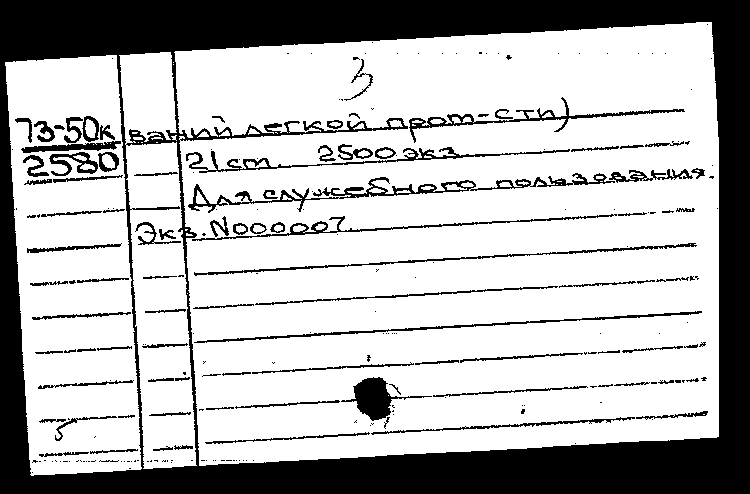 3
73-50к ваний легкой пром-сти)
2580 21 ст. 2500 экз
Для служебного пользования.
Экз. N000007.
5